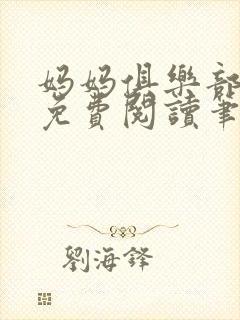 妈妈俱樂部
免費閱讀筆
劉海鋒